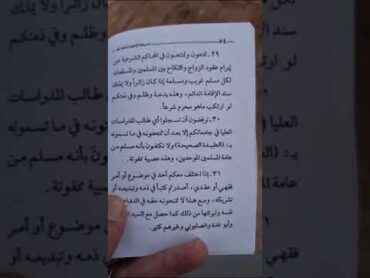 ٥٤
٢٩. تمنعون وتمتنعون في المحاكم الشرعية عن
إبرام عقود الزواج والنكاح بين المسلمين والمسلمات
لكل مسلم غريب ومسلمة إذا كان زائراً ولا يملك
سند الإقامة الدائم، وهذه بدعة وظلم وفي ذمتكم
لو ارتكب ما هو محرم شرعاً.
٣٠. ترفضون أن تسجلوا أي طالب للدراسات
العليا في جامعاتكم إلا بعد أن تمتحنونه في ما تسمونه
بـ: (العقيدة الصحيحة) ولا تكتفون بأنه مسلم من
عامة المسلمين الموحدين، وهذه عصبية ممقوتة.
٣١. إذا اختلف معكم أحد في موضوع أو أمر
فقهي أو عقدي، أصدرتم كتباً في ذمه وتبديعه أو
تشريكه، ومع هذا لا تمنحونه حقه في الدفاع
نفسه وتبرئتها من ذلك كما حصل مع السيد
وأبو غدة والصابوني وغيرهم كثير.